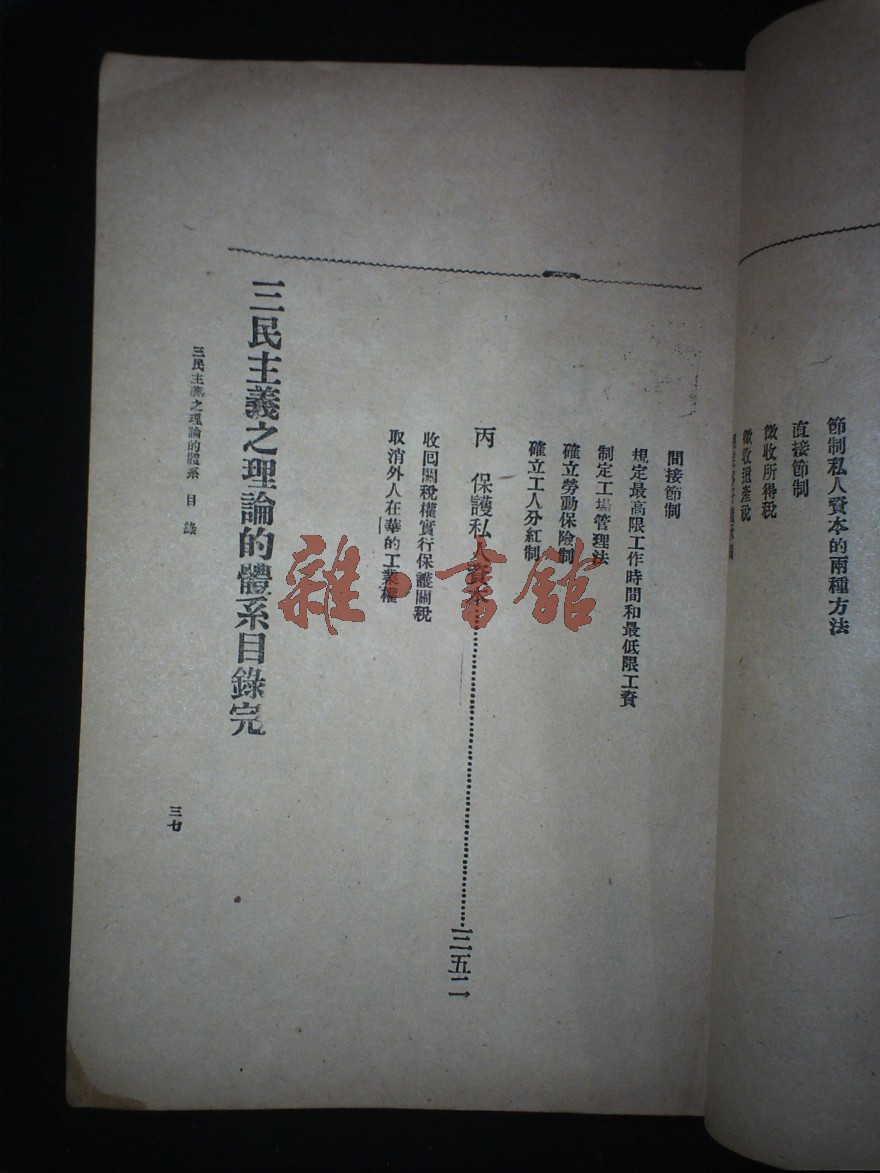 節制私人資本的兩種方法
直接節制
徵收所得稅
徵收遺產稅
間接節制
規定最高限工作時間和最低限工資
制定工場管理法
確立勞動保險制
確立工人分紅制
丙 保護私人資本……三五二
收回關稅權實行保護關稅
取消外人在華的工業權
三民主義之理論的體系目錄完
三民主義之理論的體系 目錄
三七
雜書館